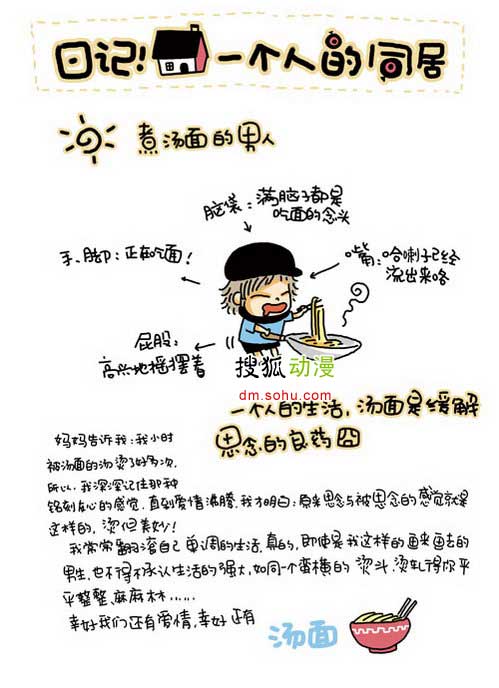 日记!一个人的同居
煮汤面的男人
脑袋:满脑子都是
吃面的念头
手、脚:正在吃面!
嘴:哈喇子已经
流出来咯
屁股:
高兴地摇摆着
搜狐动漫
dm.sohu.com
一个人的生活,汤面是缓解
思念的良药囧
妈妈告诉我:我小时
被汤面的汤烫了好多次.
所以,我深深记住那种
铭刻在心的感觉.直到爱情沸腾.我才明白:原来思念与被思念的感觉就是
这样的,烫但美妙!
我常常翻滚自己单调的生活.真的,即使是我这样的画来画去的
男生,也不得不承认生活的强大,如同一个蛮横的烫斗.烫轧得你平
平整整、麻麻木木......
幸好我们还有爱情,幸好还有
汤面